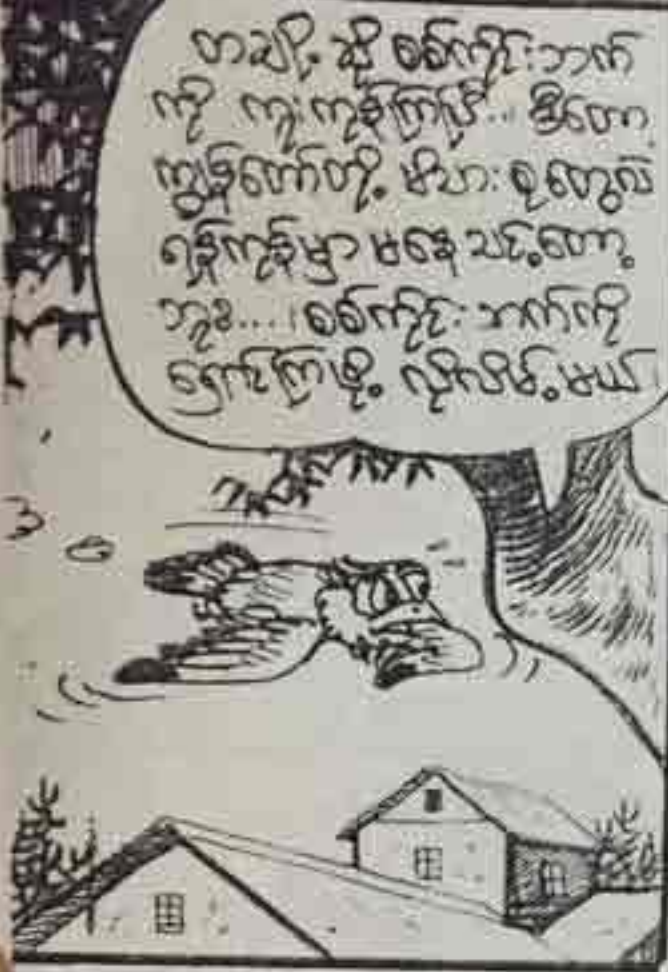 တချို့ ဆို စစ်ကိုင်းဘက်
ကို ကူးကုန်ကြပြီ... ဒီတော့
ကျွန်တော်တို့ မိသားစုတွေလဲ
ရန်ကုန်မှာ မနေသင့်တော့
ဘူး... စစ်ကိုင်းဘက်ကို
ရှောင်ကြဖို့ လိုလိမ့်မယ်